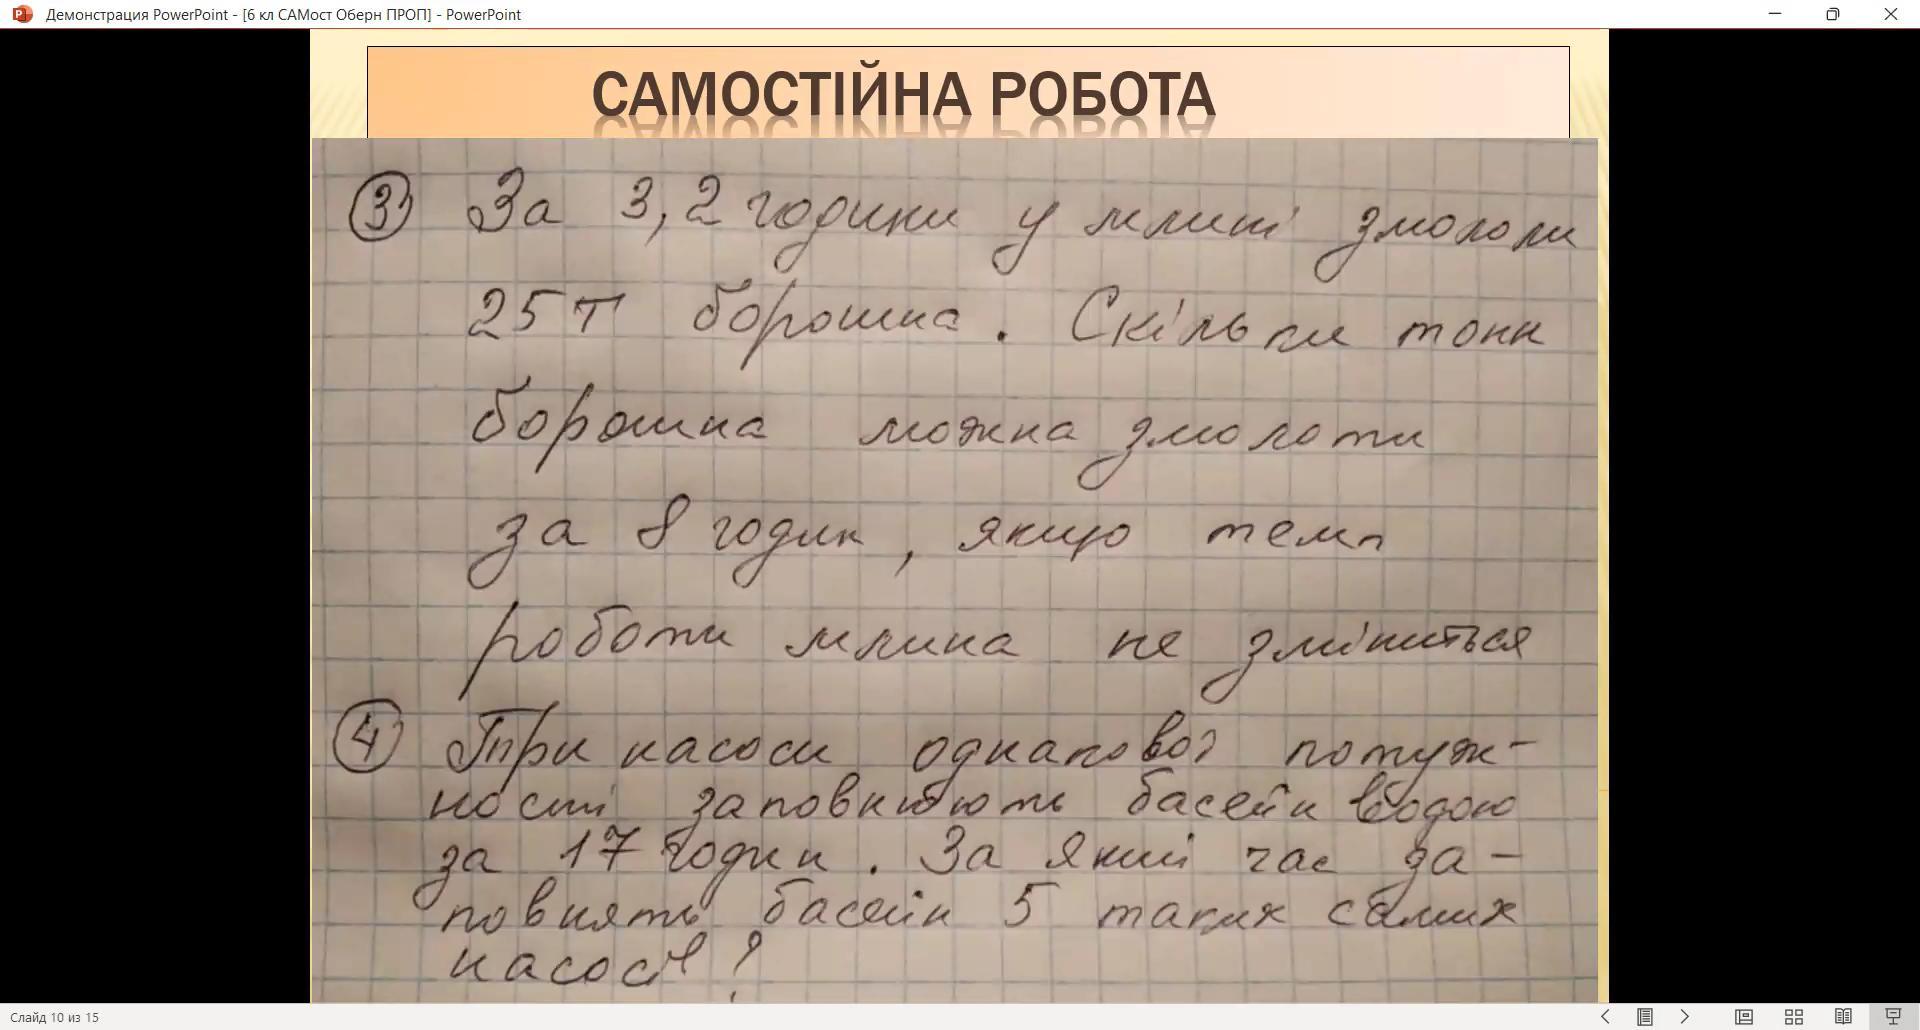 Демонстрация PowerPoint - [6 кл САМост Оберн ПРОП] - PowerPoint
САМОСТІЙНА РОБОТА
3 За 3,2 години у млині змололи
25 т борошна. Скільки тонн
борошна можна змолоти
за 8 годин, якщо темп
роботи млина не зміниться
4 Три насоси однакової потуж-
ності заповнюють басейн водою
за 17 годин. За який час за-
повнять басейн 5 таких самих
насосів?
Слайд 10 из 15